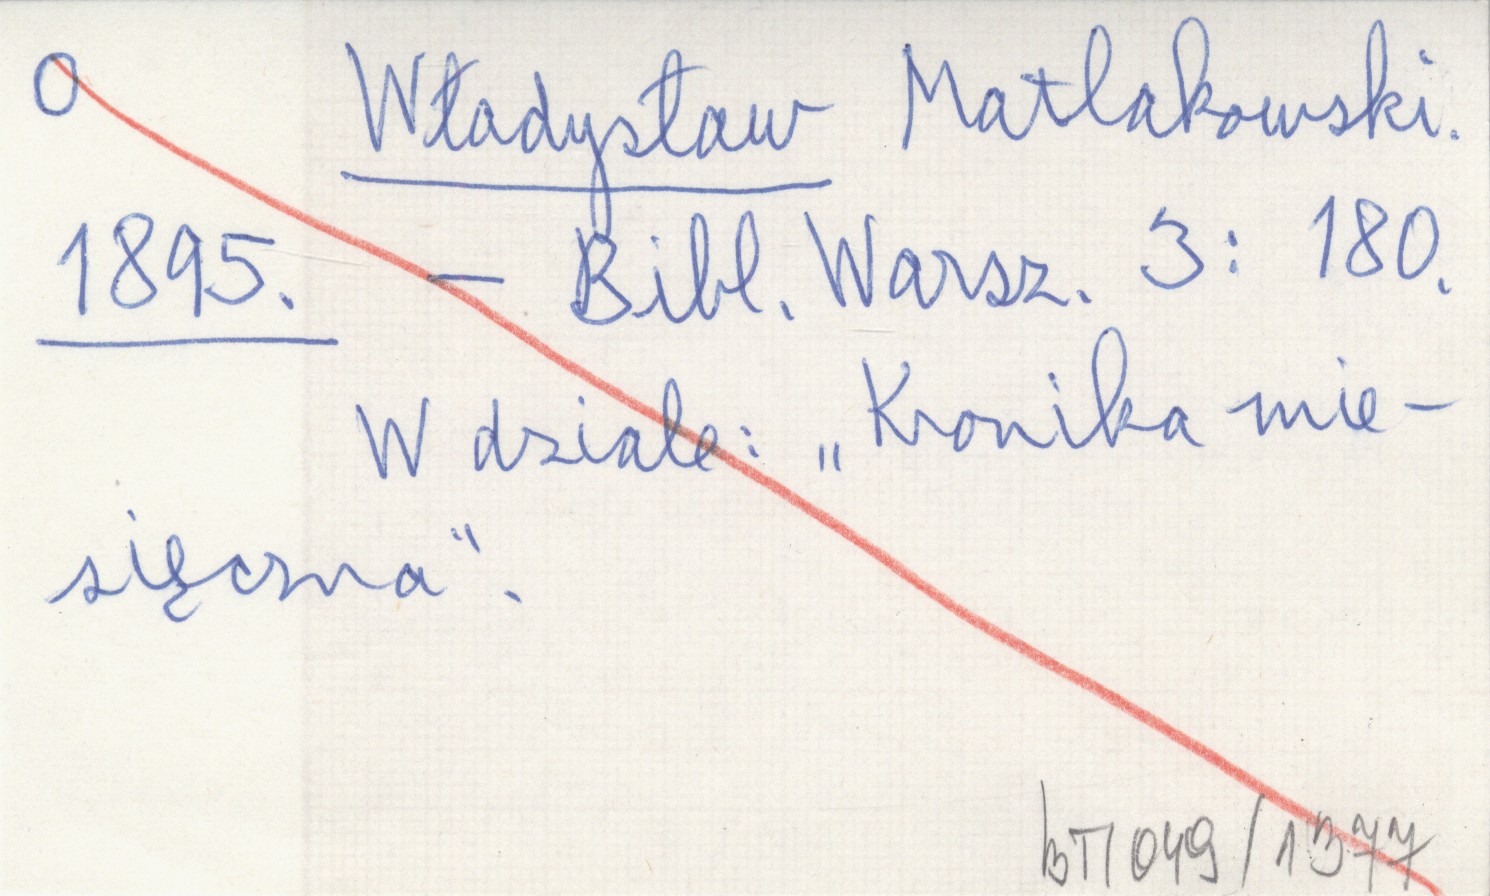 O Władysław Matlakowski.
1895. — Bibl. Warsz. 3: 180.
W dziale: „Kronika mie-
sięczna".
bT1049/1377